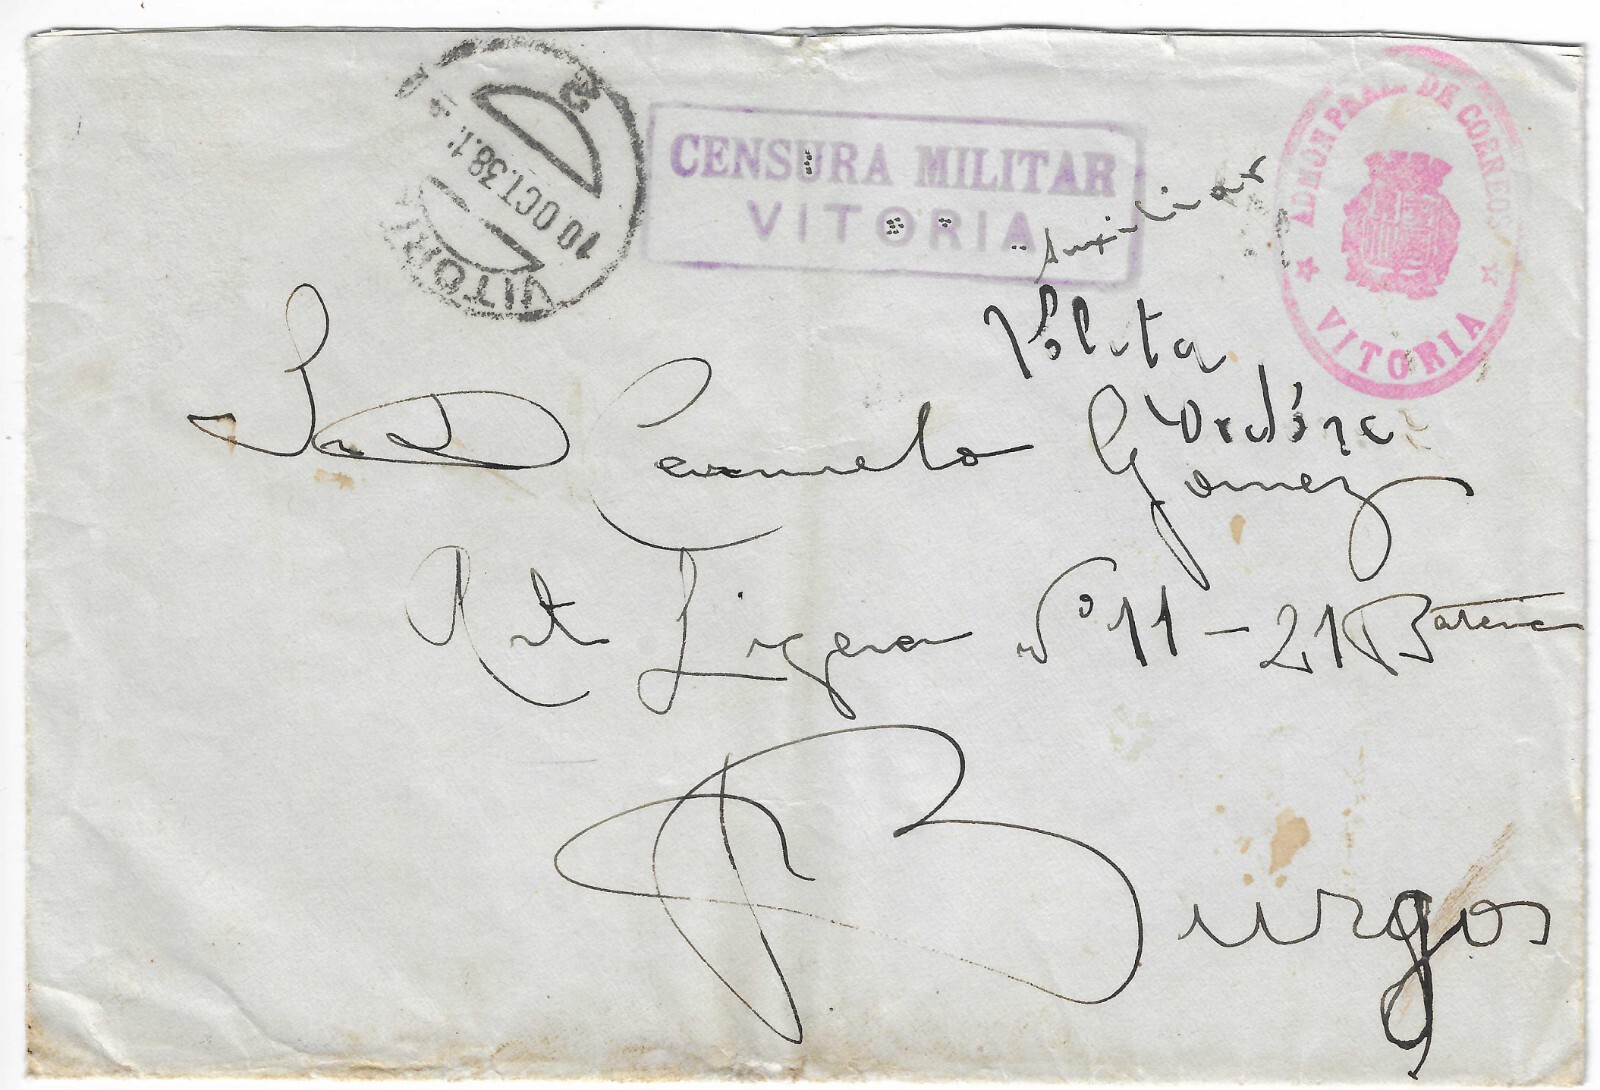 VITORIA
10 OCT.38.1
CENSURA MILITAR
VITORIA
ADMON PRAL. DE CORREOS
VITORIA
Auxiliar
Sr D Carmelo Gomez
Art Ligera Nº 11 - 21 Bateria
Burgos